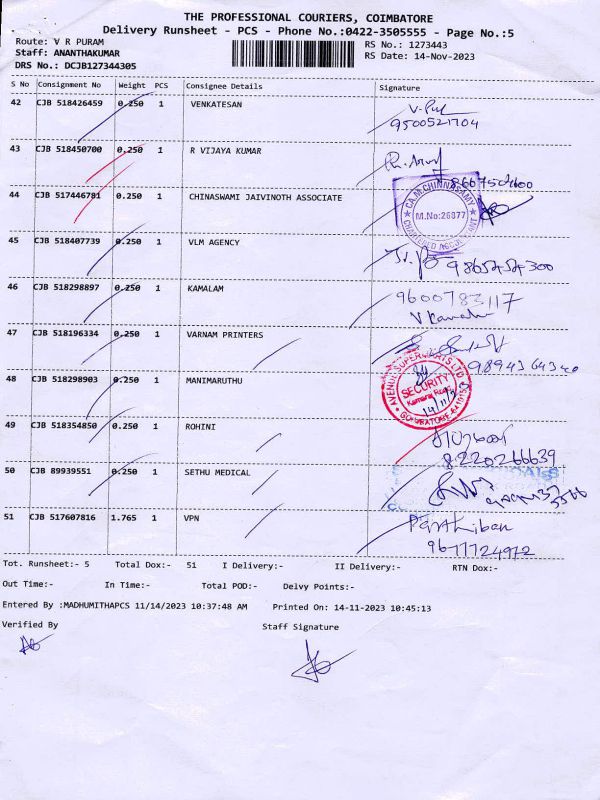 THE PROFESSIONAL COURIERS, COIMBATORE
Delivery Runsheet - PCS - Phone No.:0422-3505555 - Page No.:5
Route: V R PURAM
RS No.: 1273443
Staff: ANANTHAKUMAR
RS Date: 14-Nov-2023
DRS No.: DCJB127344305
S No Consignment No Weight PCS Consignee Details Signature
42 CJB 518426459 0.250 1 VENKATESAN
9500521704
43 CJB 518450700 0.250 1 R VIJAYA KUMAR
44 CJB 517446781 0.250 1 CHINASWAMI JAIVINOTH ASSOCIATE
CA.M.CHINNASAMY
M.No:26877
CHARTERED ACCOUNTANT
45 CJB 518407739 0.250 1 VLM AGENCY
46 CJB 518298897 0.250 1 KAMALAM
9600783117
47 CJB 518196334 0.250 1 VARNAM PRINTERS
48 CJB 518298903 0.250 1 MANIMARUTHU
AVENUE SUPERMARTS LTD
SECURITY
49 CJB 518354850 0.250 1 ROHINI
8220266639
50 CJB 89939551 0.250 1 SETHU MEDICAL
51 CJB 517607816 1.765 1 VPN
Parthiban
9677724972
Tot. Runsheet:- 5 Total Dox:- 51 I Delivery:- II Delivery:- RTN Dox:-
Out Time:- In Time:- Total POD:- Delvy Points:-
Entered By :MADHUMITHAPCS 11/14/2023 10:37:48 AM Printed On: 14-11-2023 10:45:13
Verified By Staff Signature